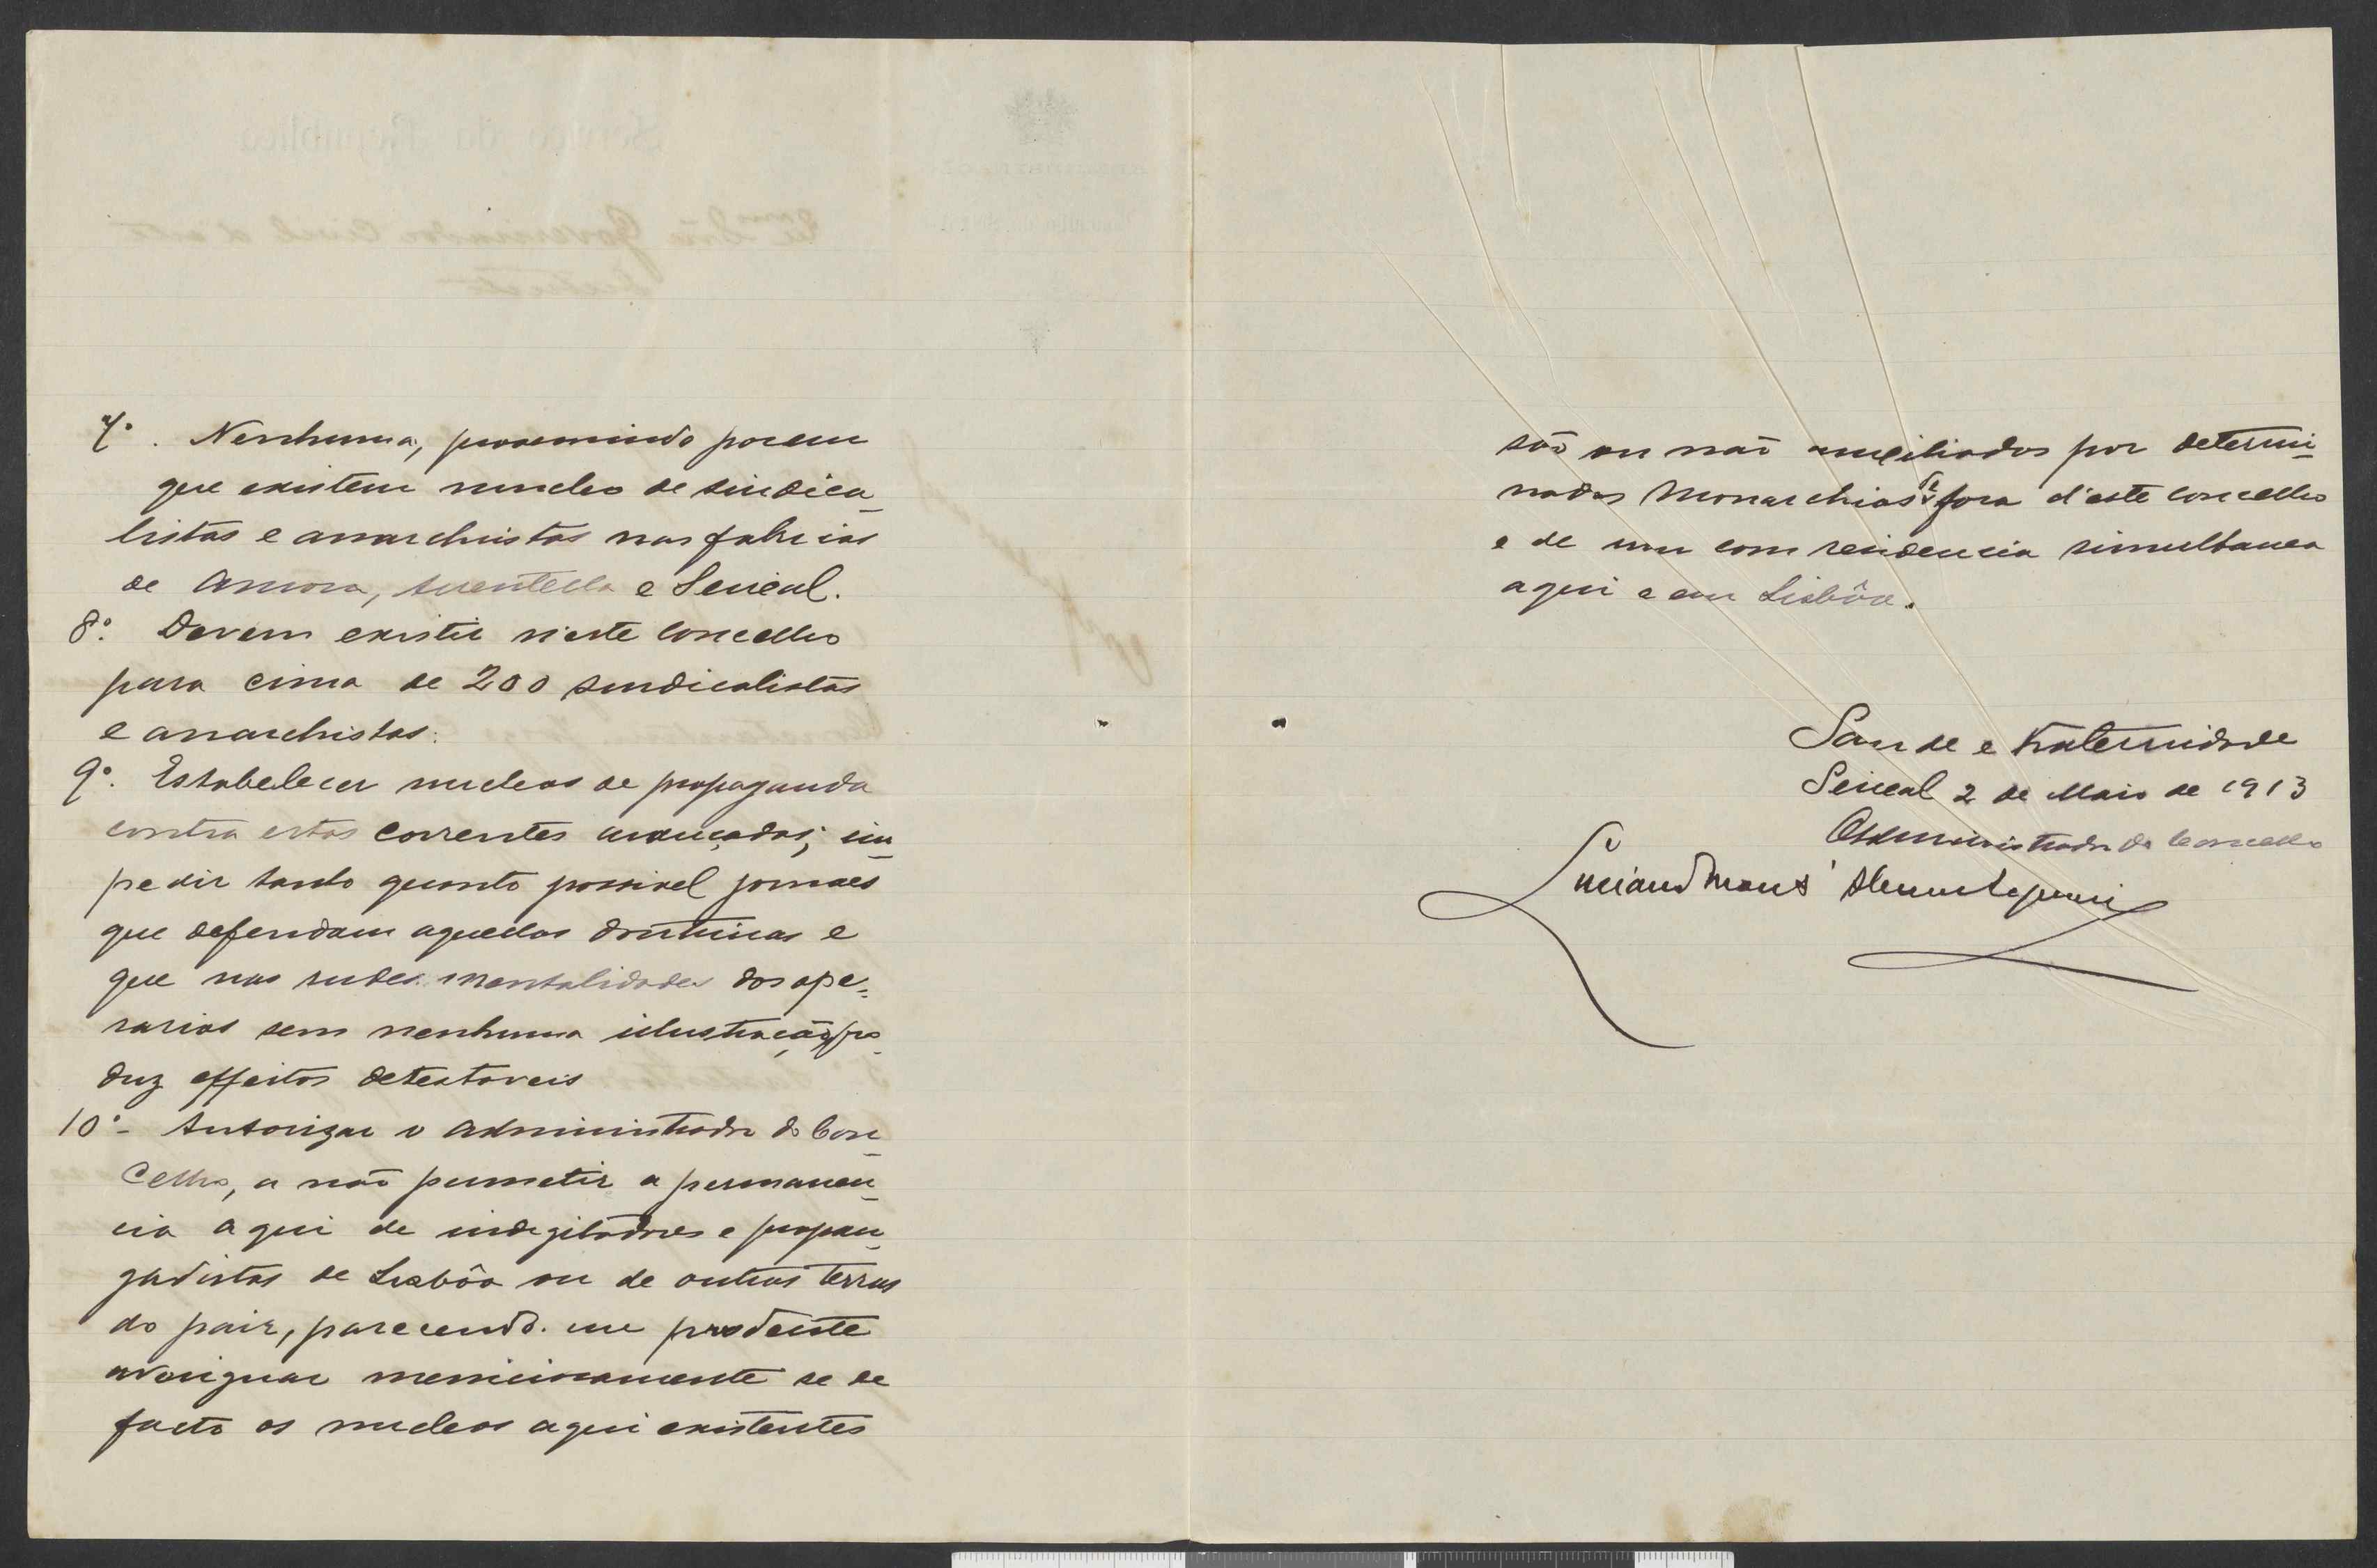 7º. Nenhuma, presumindo porem
que existem nucleo de sindica-
listas e anarchistas nas fabricas
de Amora, Arentella e Seixal.
8º. Devem existir n'este Concelho
para cima de 200 sindicalistas
e anarchistas.
9º. Estabelecer nucleos de propaganda
contra estas correntes avançadas; im-
pedir tanto quanto possivel jornaes
que defendam aquellas doutrinas e
que nas rudes mentalidades dos ope-
rarios sem nenhuma ilustração pro-
duz effeitos detestaveis
10º- Autorizar o Administrador do Con-
celho, a não permetir a permanen-
cia aqui de indigitadores e propan-
gadistas de Lisbôa ou de outras terras
do paiz, parecendo-me prodente
averiguar meniciosamente se de
facto os nucleos aqui existentes
são ou não auxiliados por determi-
nados Monarchicos de fora d'este Concelho
e de um com residencia simultanea
aqui e em Lisbôa.
Saude e Fraternidade
Seixal 2 de Maio de 1913
O Administrador do Concelho
Serviço da Republica
Governador Civil d'este